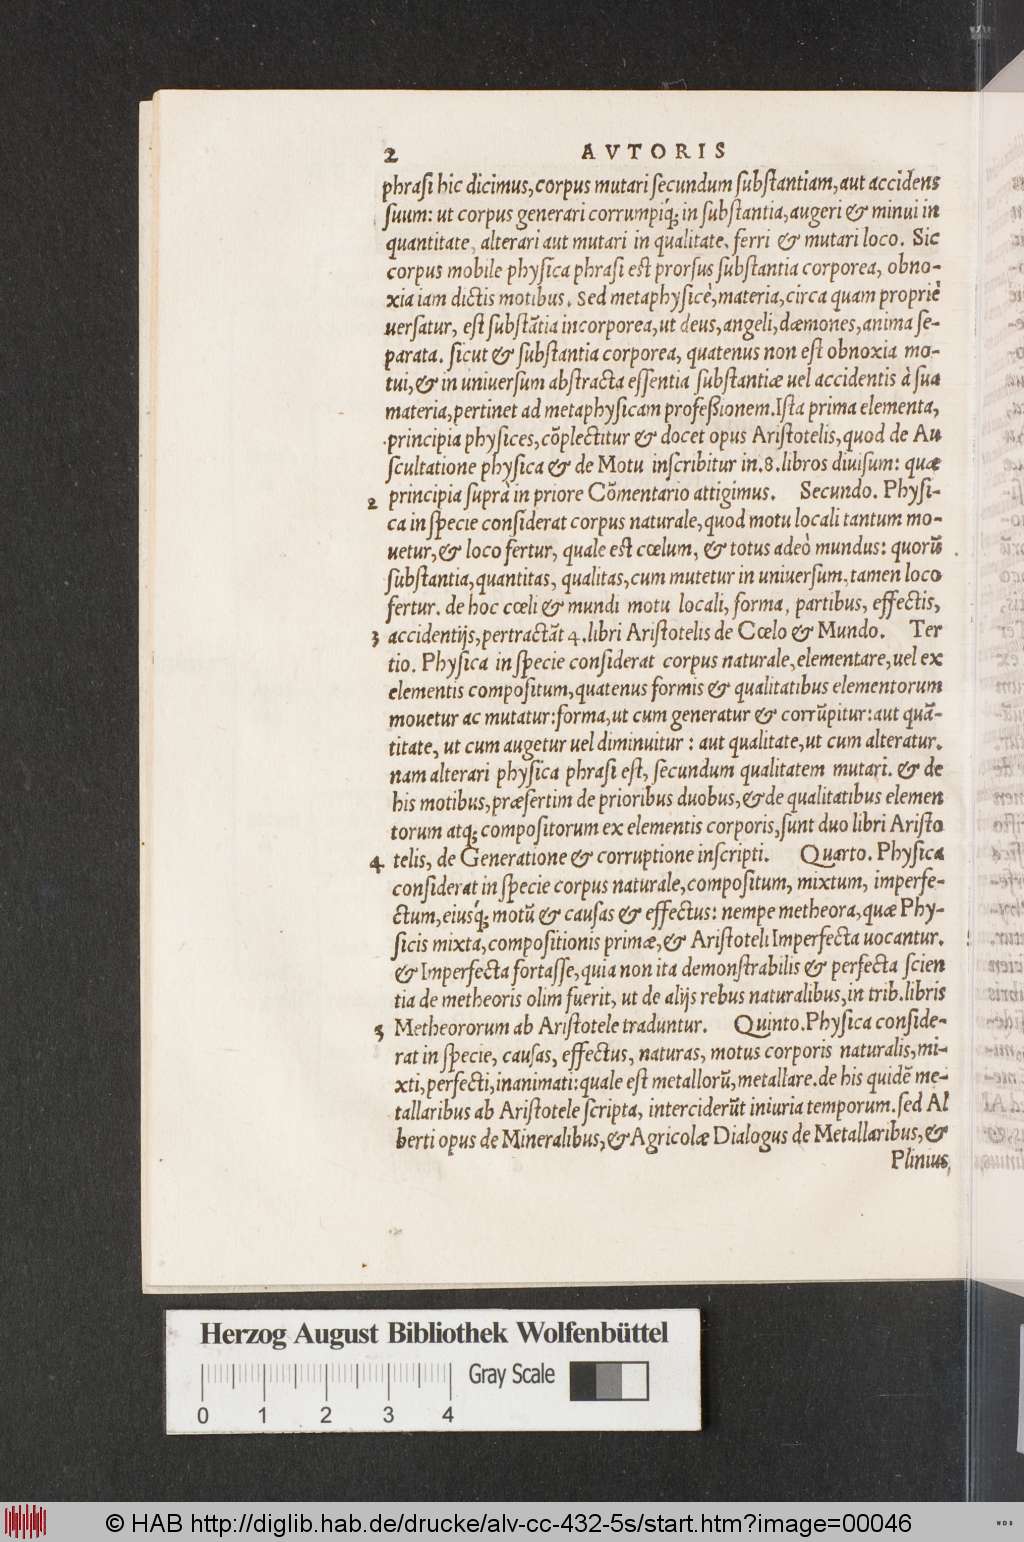 2 AVTORIS
phraſi hic dicimus, corpus mutari ſecundum ſubſtantiam, aut accidens
ſuum: ut corpus generari corrumpiq́; in ſubſtantia, augeri & minui in
quantitate, alterari aut mutari in qualitate, ferri & mutari loco. Sic
corpus mobile phyſica phraſi eſt prorſus ſubſtantia corporea, obno-
xia iam dictis motibus. Sed metaphyſicè, materia, circa quam propriè
uerſatur, eſt ſubſtātia incorporea, ut deus, angeli, dæmones, anima ſe-
parata. ſicut & ſubſtantia corporea, quatenus non eſt obnoxia mo-
tui, & in uniuerſum abſtracta eſſentia ſubſtantiæ uel accidentis à ſua
materia, pertinet ad metaphyſicam profeßionem. Iſta prima elementa,
principia phyſices, cōplectitur & docet opus Ariſtotelis, quod de Au
ſcultatione phyſica & de Motu inſcribitur in .8. libros diuiſum: quæ
2 principia ſuprà in priore Cōmentario attigimus. Secundo. Phyſi-
ca in ſpecie conſiderat corpus naturale, quod motu locali tantum mo-
uetur, & loco fertur, quale eſt cœlum, & totus adeò mundus: quorū
ſubſtantia, quantitas, qualitas, cum mutetur in uniuerſum, tamen loco
fertur. de hoc cœli & mundi motu locali, forma, partibus, effectis,
3 accidentijs, pertractāt 4. libri Ariſtotelis de Cœlo & Mundo. Ter
tio. Phyſica in ſpecie conſiderat corpus naturale, elementare, uel ex
elementis compoſitum, quatenus formis & qualitatibus elementorum
mouetur ac mutatur: forma, ut cum generatur & corrūpitur: aut quā-
titate, ut cum augetur uel diminuitur : aut qualitate, ut cum alteratur.
nam alterari phyſica phraſi eſt, ſecundum qualitatem mutari. & de
his motibus, præſertim de prioribus duobus, & de qualitatibus elemen
torum atq; compoſitorum ex elementis corporis, ſunt duo libri Ariſto
4 telis, de Generatione & corruptione inſcripti. Quarto. Phyſica
conſiderat in ſpecie corpus naturale, compoſitum, mixtum, imperfe-
ctum, eiusq́; motū & cauſas & effectus: nempe metheora, quæ Phy-
ſicis mixta, compoſitionis primæ, & Ariſtoteli Imperfecta uocantur.
& Imperfecta fortaſſe, quia non ita demonſtrabilis & perfecta ſcien
tia de metheoris olim fuerit, ut de alijs rebus naturalibus, in trib. libris
5 Metheororum ab Ariſtotele traduntur. Quinto. Phyſica conſide-
rat in ſpecie, cauſas, effectus, naturas, motus corporis naturalis, mi-
xti, perfecti, inanimati: quale eſt metallorū, metallare. de his quidē me-
tallaribus ab Ariſtotele ſcripta, interciderūt iniuria temporum. ſed Al
berti opus de Mineralibus, & Agricolæ Dialogus de Metallaribus, &
Plinius,
Herzog August Bibliothek Wolfenbüttel
Gray Scale
0 1 2 3 4
© HAB http://diglib.hab.de/drucke/alv-cc-432-5s/start.htm?image=00046